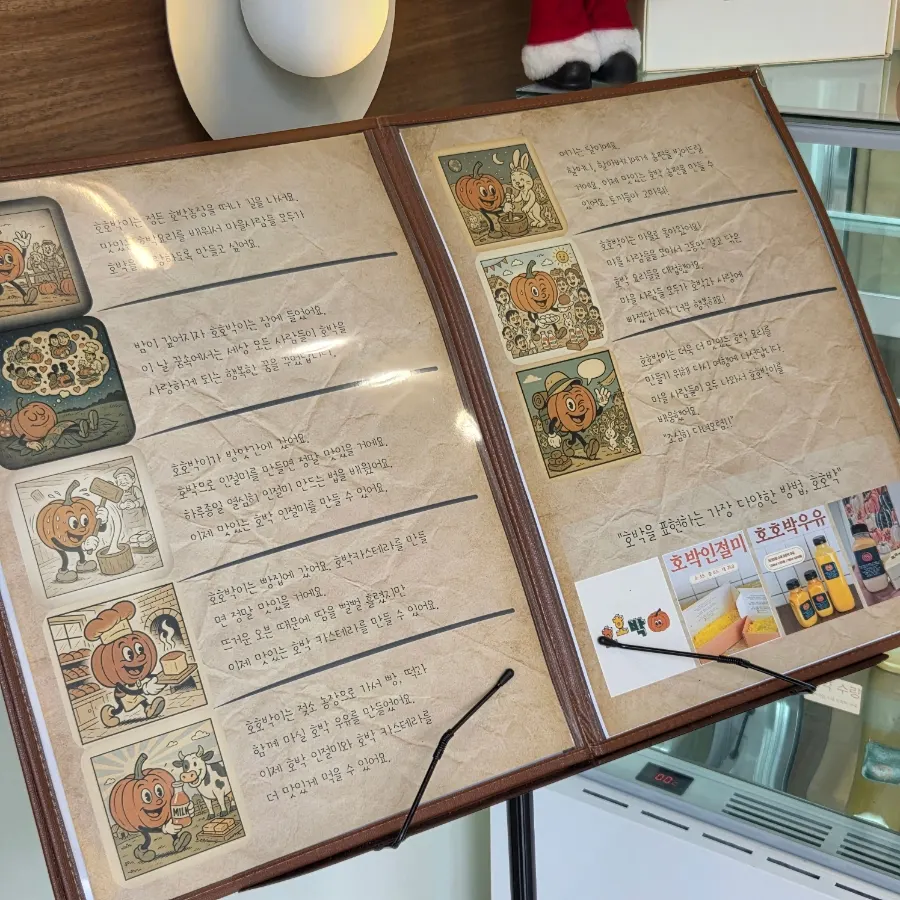 호호박이는 정든 호박농장을 떠나 길을 나서요.
맛있는 호박요리를 배워서 마을사람들 모두가
호박을 사랑하도록 만들고 싶어요.
밤이 깊어지자 호호박이는 잠에 들었어요.
이 날 꿈속에서는 세상 모든 사람들이 호박을
사랑하게 되는 행복한 꿈을 꾸었답니다.
호호박이가 방앗간에 갔어요.
호박으로 인절미를 만들면 정말 맛있을 거에요.
하루종일 열심히 인절미 만드는 법을 배웠어요.
이제 맛있는 호박 인절미를 만들 수 있어요.
호호박이는 빵집에 갔어요. 호박카스테라를 만들
면 정말 맛있을 거에요.
뜨거운 오븐 때문에 땀을 뻘뻘 흘렸지만
이제 맛있는 호박 카스테라를 만들 수 있어요.
호호박이는 젖소 농장으로 가서 빵, 떡과
함께 마실 호박 우유를 만들었어요.
이제 호박 인절미와 호박 카스테라를
더 맛있게 먹을 수 있어요.
MILK
여기는 달이에요.
할머니, 할아버지에게 양갱을 빚어드릴
거에요. 이제 맛있는 호박 양갱을 만들 수
있어요. 토끼들아 고마워!
호호박이는 마을로 돌아왔어요!
마을 사람들을 모아서 그동안 갈고 닦은
호박 요리들을 대접했어요.
마을 사람들 모두가 호박과 사랑에
빠졌답니다! 너무 행복해요!
호호박이는 더욱 더 맛있는 호박 요리를
만들기 위해 다시 여행에 나섰답니다.
마을 사람들이 모두 나와서 호호박이를
배웅했어요.
"조심히 다녀오렴!"
"호박을 표현하는 가장 다양한 방법, 호호박"
박
호박인절미
호호박우유